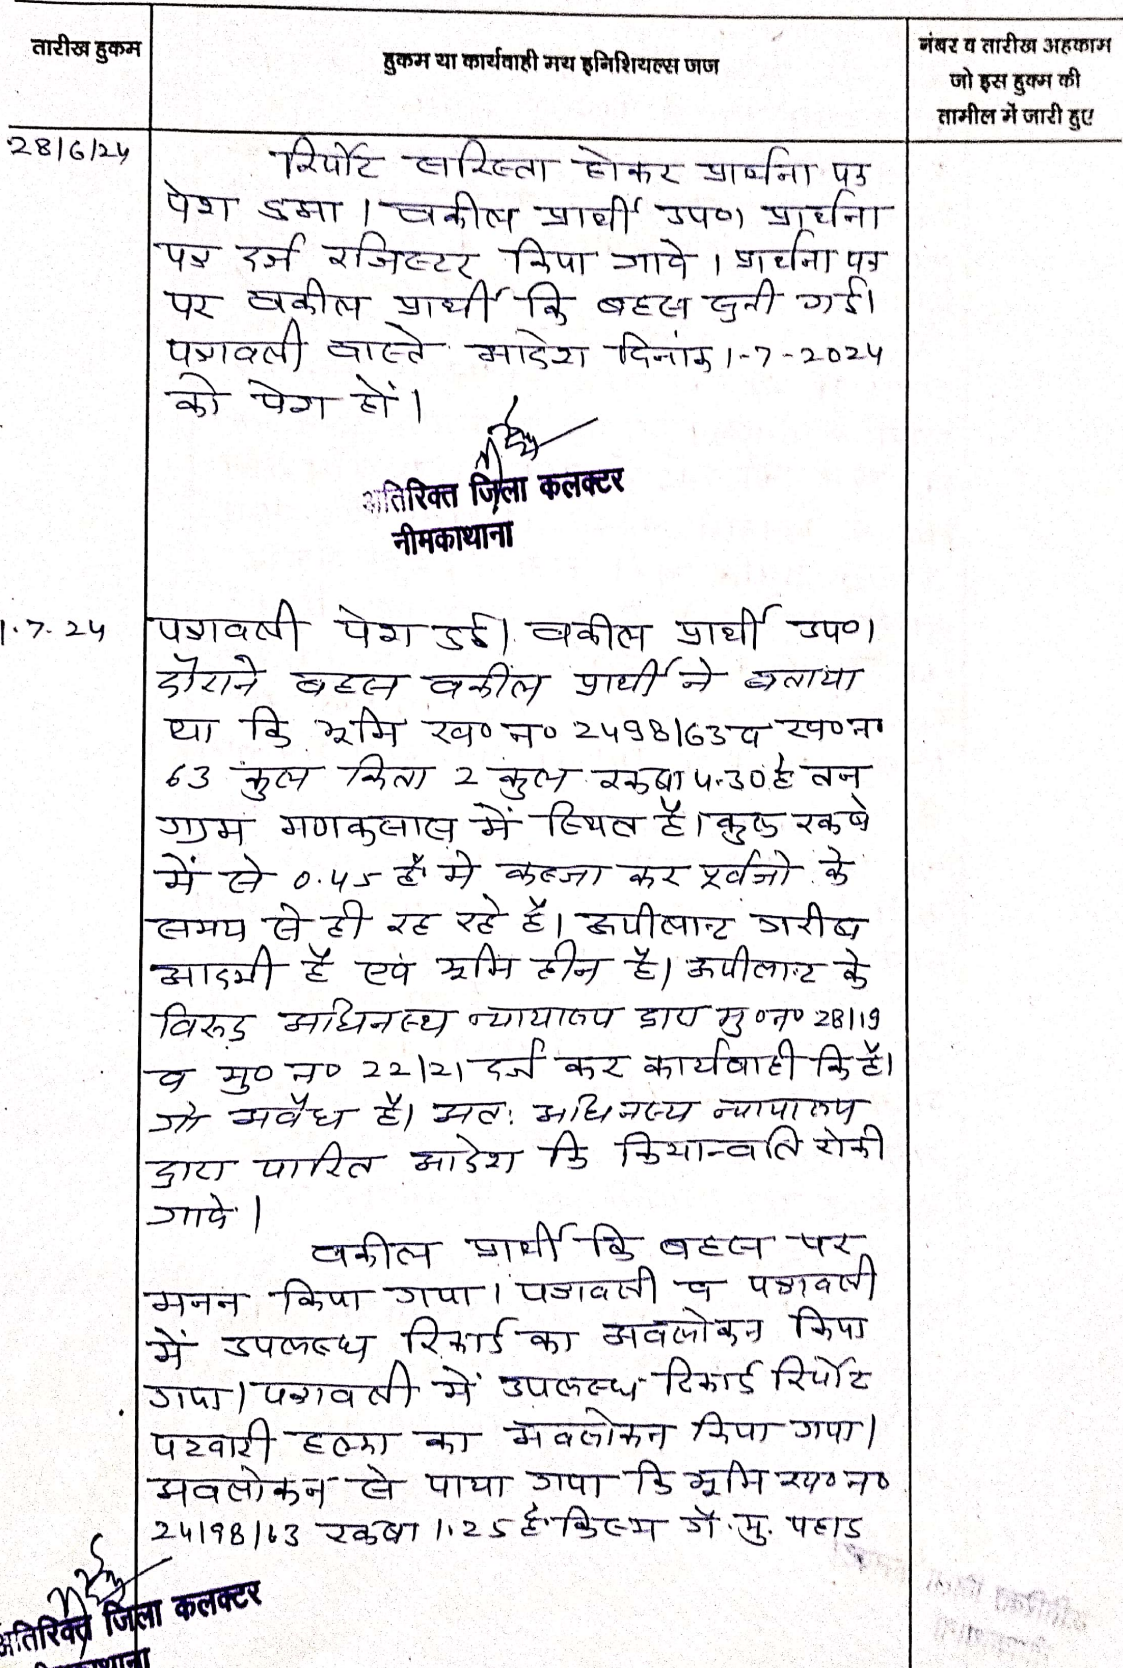 तारीख हुकम
हुकम या कार्यवाही मय इनिशियल्स जज
नंबर व तारीख अहकाम
जो इस हुक्म की
तामील में जारी हुए
28/6/24
रिर्पोट सरिस्ता होकर प्रार्थना पत्र
पेश हुआ। वकील प्रार्थी उप०। प्रार्थना
पत्र दर्ज रजिस्टर किया जावे। प्रार्थना पत्र
पर वकील प्रार्थी कि बहस सुनी गई।
पत्रावली वास्ते आदेश दिनांक 1-7-2024
को पेश हों।
अतिरिक्त जिला कलक्टर
नीमकाथाना
1.7.24
पत्रावली पेश हुई। वकील प्रार्थी उप०।
दौराने बहस वकील प्रार्थी ने बताया
था कि भूमि ख० न० 2498/63 व ख० न०
63 कुल किता 2 कुल रकबा 4.30 है तन
ग्राम गणकसास में स्थित है। कुल रकबे
में से 0.45 है में कब्जा कर पूर्वजो के
समय से ही रह रहे है। अपीलान्ट गरीब
आदमी है एवं भूमि हीन है। अपीलान्ट के
विरुद्ध अधिनस्थ न्यायालय द्वारा मु० न० 28/19
व मु० न० 22/21 दर्ज कर कार्यवाही कि है।
जो अवैध है। अत: अधिनस्थ न्यायालय
द्वारा पारित आदेश कि क्रियान्वति रोकी
जावे।
वकील प्रार्थी कि बहस पर
मनन किया गया। पत्रावली व पत्रावली
में उपलब्ध रिकार्ड का अवलोकन किया
गया। पत्रावली में उपलब्ध रिकार्ड रिर्पोट
पटवारी हल्का का अवलोकन किया गया।
अवलोकन से पाया गया कि भूमि ख० न०
24198/63 रकबा 1.25 है. किस्म गै. मु. पहाड
अतिरिक्त जिला कलक्टर